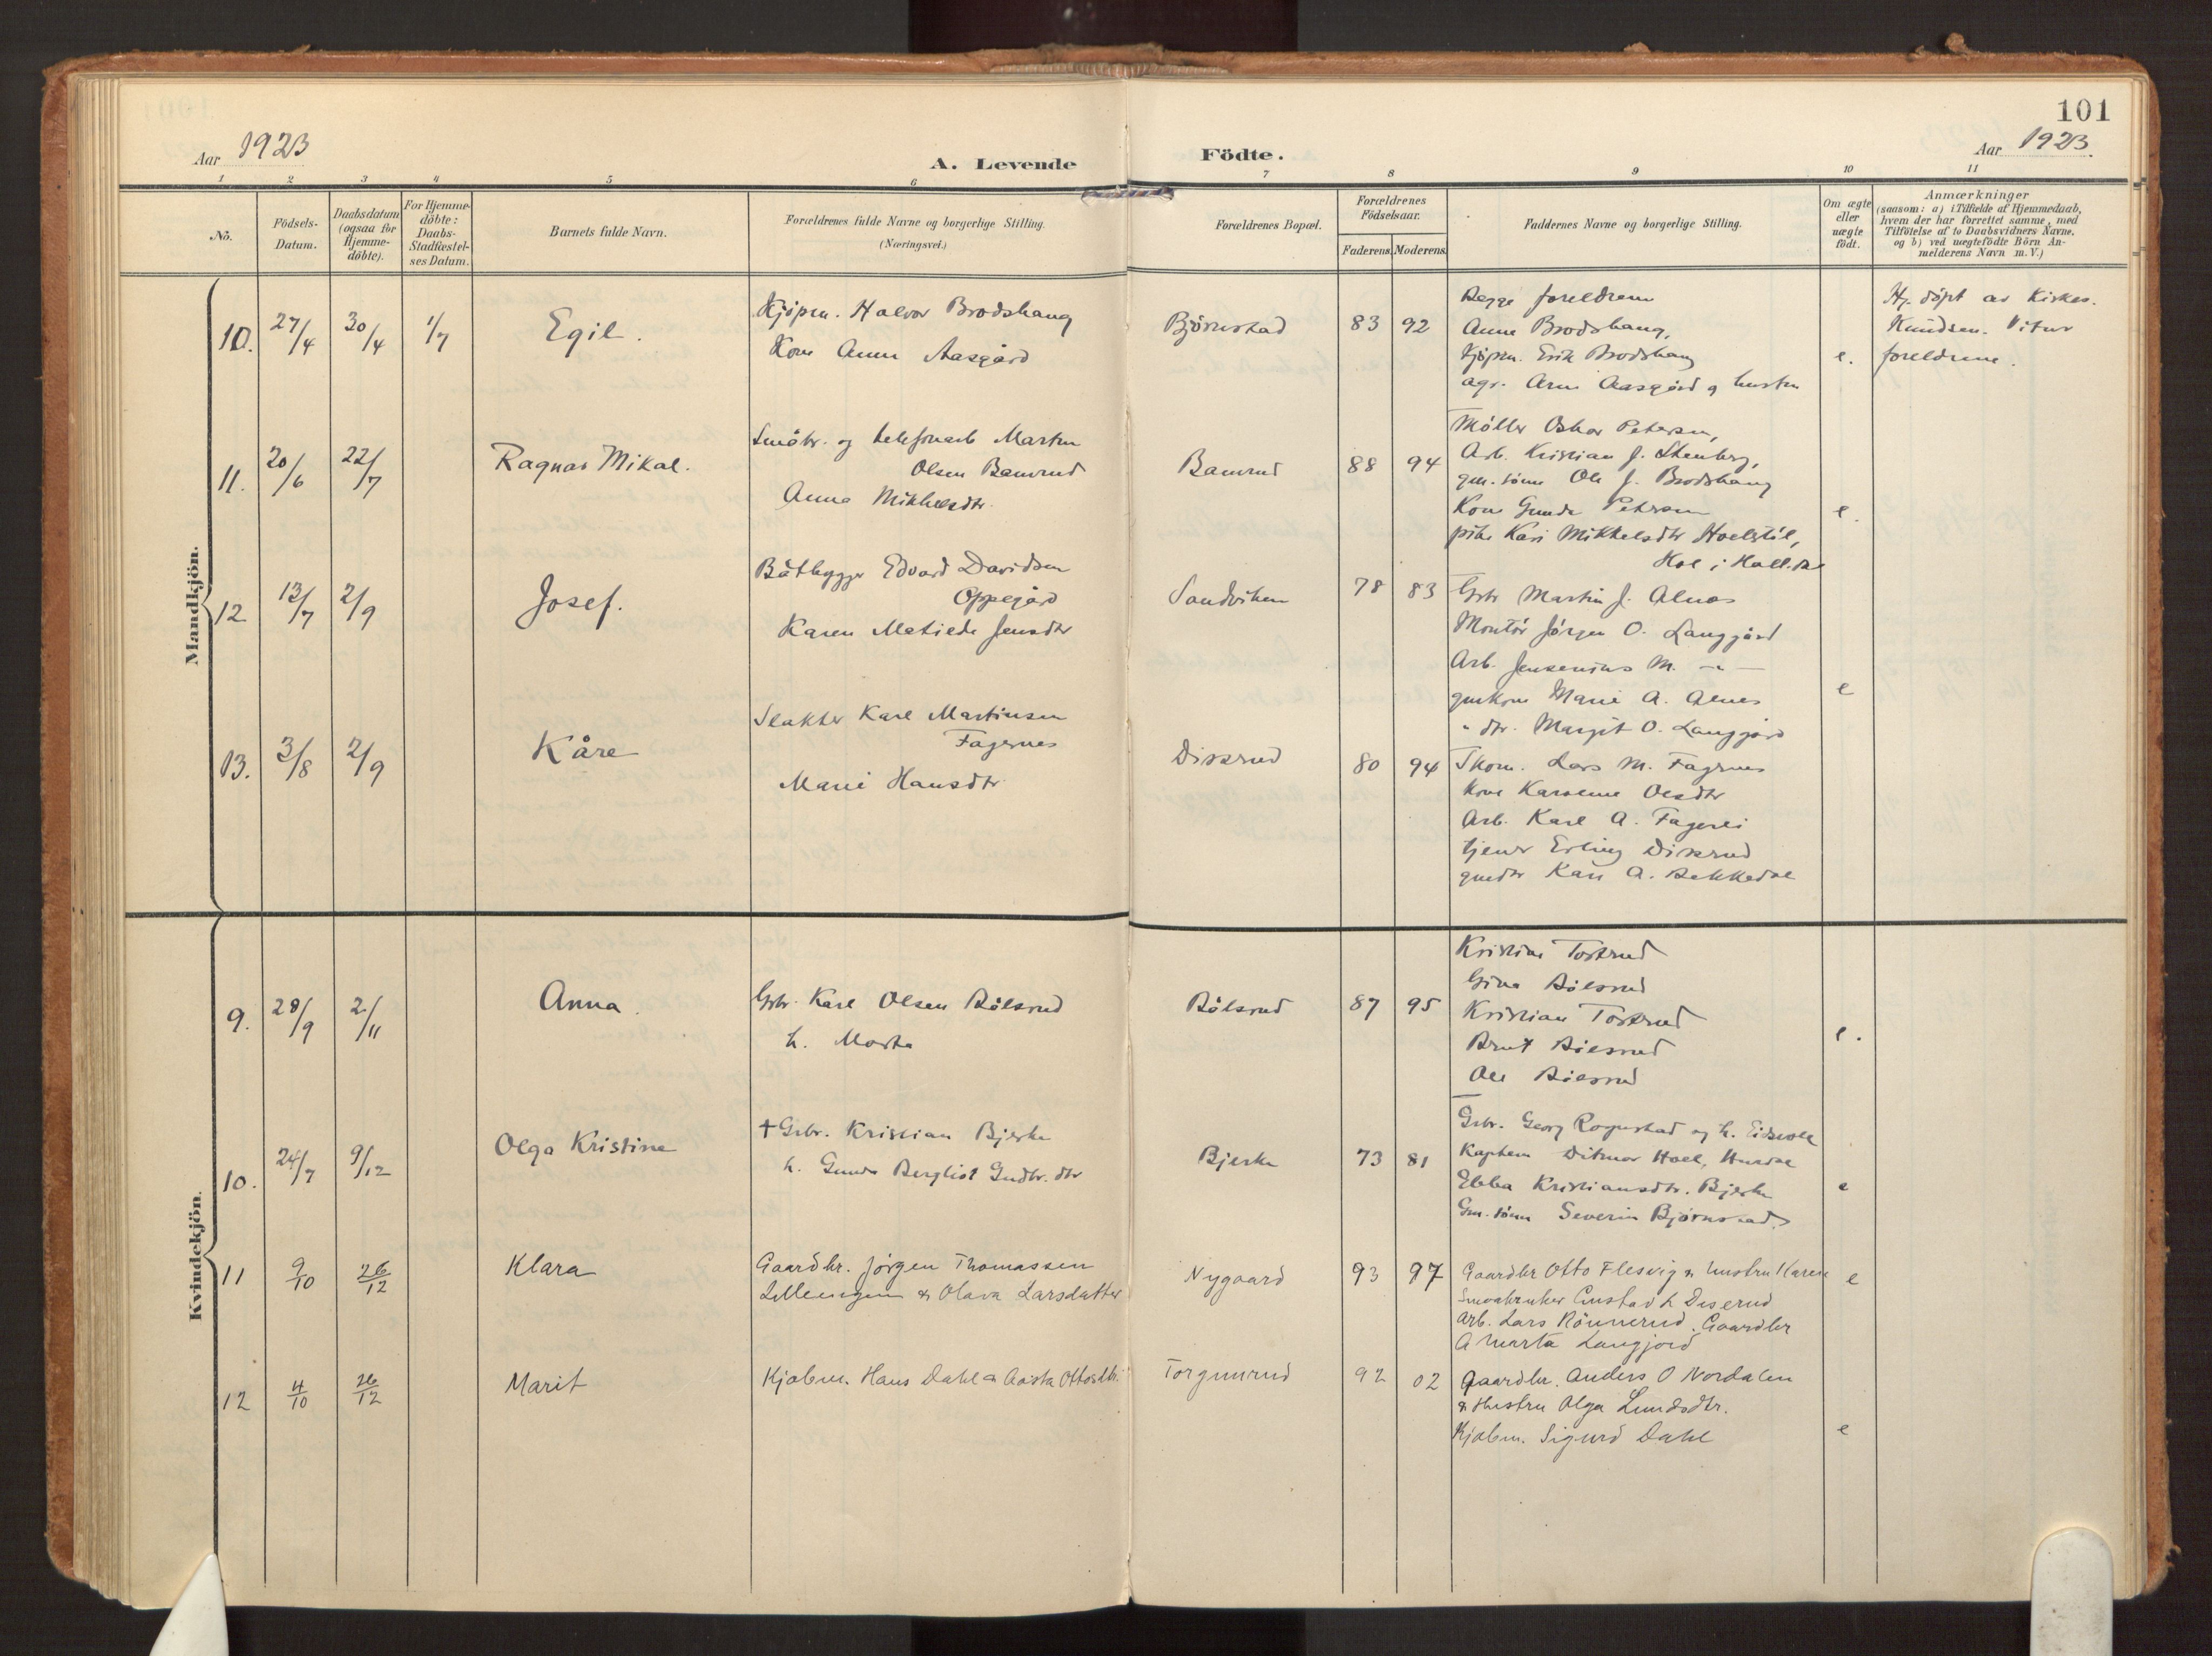 101
Aar 1923
A. Levende
Födte.
Aar 1923
1 2 3 4 5 6 7 8 9 10 11
Nô.
Födsels-Datum.
Daabsdatum (ogsaa for Hjemme-döbte).
For Hjemme-döbte: Daabs-Stadfæstel-ses Datum.
Barnets fulde Navn.
Forældrenes fulde Navne og borgerlige Stilling.
(Næringsvei.)
Forældrenes Bopæl.
Forældrenes Födselsaar.
Faderens. Moderens.
Faddernes Navne og borgerlige Stilling.
Om ægte eller uægte födt.
Anmærkninger
(saasom: a) i Tilfælde af Hjemmedaab,
hvem der har forrettet samme, med
Tilföielse af to Daabsvidners Navne,
og b) ved uægtefödte Börn An-
melderens Navn m.V.)
Mandkjön.
10. 27/4 30/4 1/7 Egil.
Kjøpm. Halvor Brodshaug
Kone Anna Aasgård
Bjørnstad 83 92
Begge foreldrene
Anne Brodshaug,
Kjøpm. Erik Brodshaug
agr. Arne Aasgård og hustru
e.
Hj. døpt av Kirkes.
Knudsen. Vitner
foreldrene.
11. 20/6 22/7 Ragnar Mikal.
Småbr. og telefonarb Martin
Olsen Bamrud
Anna Mikkelsdtr.
Bamrud 88 94
Møller Oskar Petersen,
Arb. Kristian J. Stenberg,
gm. sønn Ole J. Brodshaug
Kone Gunda Petersen
pike Kari Mikkelsdtr Hoelstøl,
Hol i Hall.dal
e.
12. 13/7 2/9 Josef.
Båtbygger Edvard Davidsen
Oppegård
Karen Matilde Jensdtr
Sandviken 78 83
Gbr Martin J. Alnæs
Montør Jørgen O. Langgård
Arb. Jensenius M. -"-
gmkone Marie A. Alnes
" dtr. Margit O. Langgård
e
13. 3/8 2/9 Kåre
Slakter Karl Martinsen
Fagernes
Marie Hansdtr.
Diserud 80 94
Skom. Lars M. Fagernes
Kone Karoline Olsdtr
Arb. Karl A. Fagerli
tjener Erling Diserud
gmdtr Kari A. Bekkedal
Kvindekjön.
9. 28/9 2/11 Anna.
Gbr. Karl Olsen Bålsrud
h. Marta
Bålsrud 87 95
Kristine Tostrud
Gina Bålsrud
Kristian Tostrud
Bålsrud
Ole Bålsrud
e.
10. 24/7 9/12 Olga Kristine
+ Gbr. Kristian Bjerke
h. Gunda Bergliot Gudbr. dtr
Bjerke 73 81
Gbr. Georg Rognstad og h. Eidsvoll
Kaptein Ditmar Hoel, Hurdal
Ebba Kristiansdtr. Bjerke
Gm. sønn Severin Bjørnstad.
e
11 9/10 26/12 Klara
Gaardbr. Jørgen Thomassen
Lillemyren & Olava Larsdatter
Nygaard 93 97
Gaardbr Otto Flesvig & hustru Karen
Smaabruker Gustav L Diserud
Arb. Lars Rönnerud. Gaardbr
A Marta Langjord
e
12 4/10 26/12 Marit
Kjøbm. Hans Dahl & Aasta Ottosdtr.
Torgunrud 92 02
Gaardbr. Anders O Nordalen
& Hustru Olga Lundsdtr.
Kjøbm. Sigurd Dahl
e